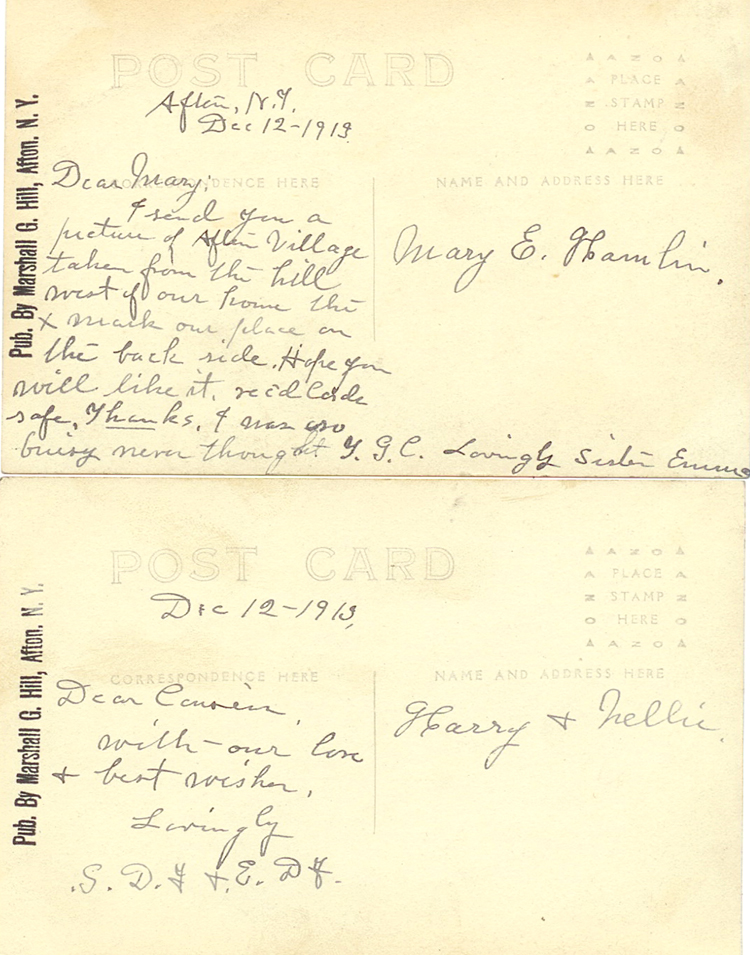 POST CARD
AZO
PLACE
STAMP
HERE
AZO
Pub. By Marshall G. Hill, Afton. N. Y.
Afton, N.Y.
Dec 12-1913
CORRESPONDENCE HERE
NAME AND ADDRESS HERE
Dear Mary:
I send you a
picture of Afton Village
taken from the hill
west of our home the
x mark our place on
the back side. Hope you
will like it. rec'd
safe. Thanks. I was so
buisy never thought Lovingly Sister Emma
Mary E. Hamlin.
POST CARD
AZO
PLACE
STAMP
HERE
AZO
Pub. By Marshall G. Hill, Afton. N. Y.
Dec 12-1913,
CORRESPONDENCE HERE
NAME AND ADDRESS HERE
Dear Cousin,
with-our love
+ best wishes,
Lovingly
S. D. F + E. D F.
Harry + Nellie.